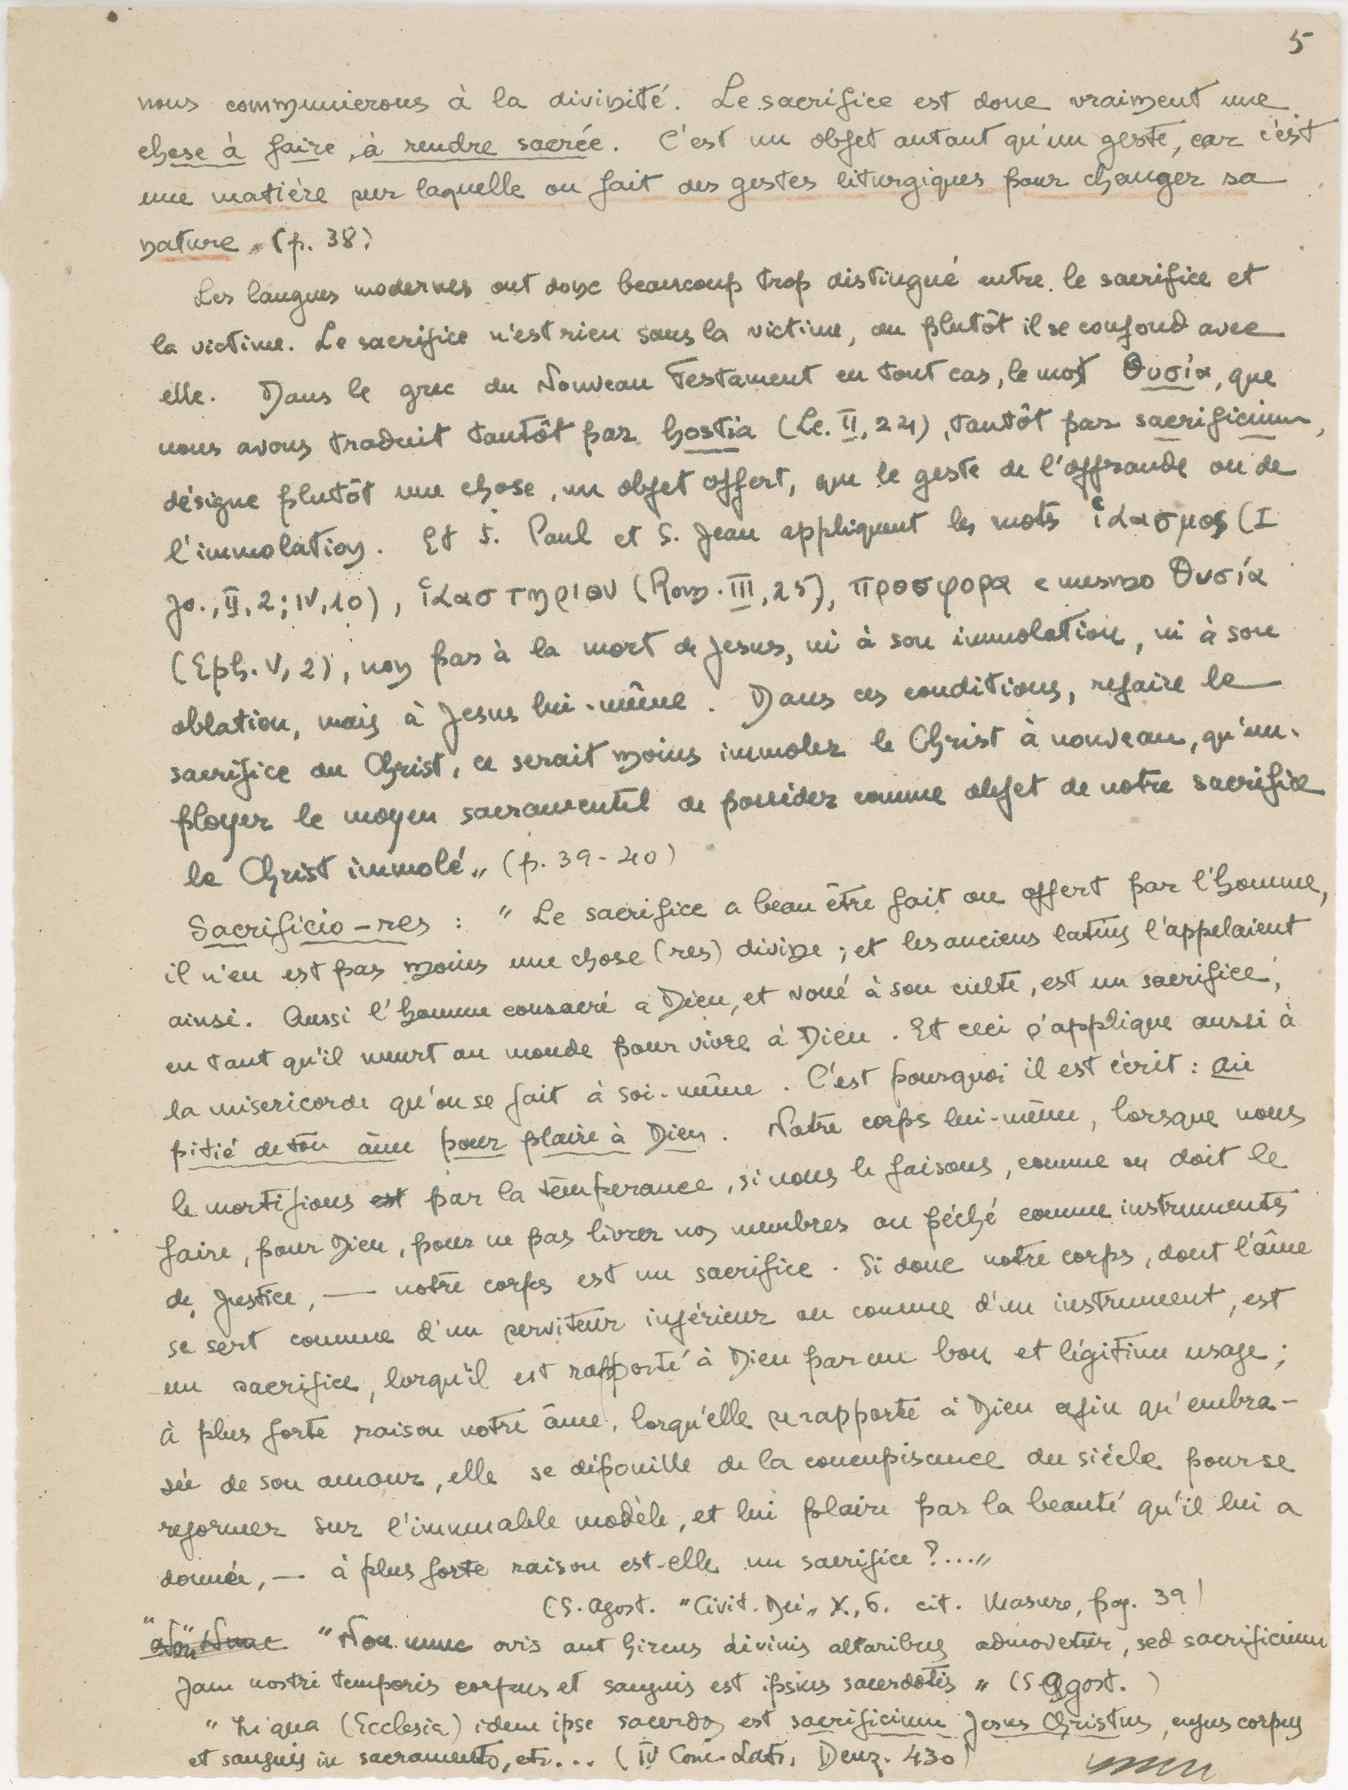 5
nous communierons à la divinité. Le sacrifice est donc vraiment une
chose à faire, à rendre sacrée. C'est un objet autant qu'un geste, car c'est
une matière sur laquelle on fait des gestes liturgiques pour changer sa
nature „ (p. 38)
Les langues modernes ont donc beaucoup trop distingué entre le sacrifice et
la victime. Le sacrifice n'est rien sans la victime, ou plutôt il se confond avec
elle. Dans le grec du Nouveau Testament en tout cas, le mot Θυσία, que
nous avons traduit tantôt par hostia (Lc. II, 24), tantôt par sacrificium,
désigne plutôt une chose, un objet offert, que le geste de l'offrande ou de
l'immolation. Et S. Paul et S. Jean appliquent les mots ἱλασμος (I
Jo., II, 2; IV, 10), ἱλαστηριον (Rom. III, 25), προσφορα e mesmo Θυσία
(Eph. V, 2), non pas à la mort de Jesus, ni à son immolation, ni à son
oblation, mais à Jesus lui-même. Dans ces conditions, refaire le
sacrifice du Christ, ce serait moins immoler le Christ à nouveau, qu'em-
ployer le moyen sacramentel de posséder comme objet de notre sacrifice
le Christ immolé „ (p. 39-40)
Sacrificio-res : " Le sacrifice a beau être fait ou offert par l'homme,
il n'en est pas moins une chose (res) divine; et les anciens latins l'appelaient
ainsi. Aussi l'homme consacré a Dieu, et voué à son culte, est un sacrifice,
en tant qu'il meurt au monde pour vivre à Dieu. Et ceci s'applique aussi à
la misericorde qu'on se fait à soi-même. C'est pourquoi il est écrit : Aie
pitié de ton âme pour plaire à Dieu. Notre corps lui-même, lorsque nous
le mortifions est par la tempérance, si nous le faisons, comme on doit le
faire, pour Dieu, pour ne pas livrer nos membres au péché comme instruments
de justice, — notre corps est un sacrifice. Si donc notre corps, dont l'âme
se sert comme d'un serviteur inférieur ou comme d'un instrument, est
un sacrifice, lorqu'il est rapporté à Dieu par un bon et légitime usage;
à plus forte raison notre âme, lorqu'elle se rapporte à Dieu afin qu'embra-
sée de son amour, elle se dépouille de la concupiscence du siècle pour se
reformer sur l'immuable modèle, et lui plaire par la beauté qu'il lui a
donnée, — à plus forte raison est-elle un sacrifice ?... „
(S. Agost. "Civit. Dei„ X, 6. cit. Masure, pag. 39)
"Non nunc ovis aut hircus divinis altaribus admovetur, sed sacrificium
jam nostri temporis corpus et sanguis est ipsius sacerdotis „ (S. Agost. )
" In qua (Ecclesia) idem ipse sacerdos est sacrificium Jesus Christus, cujus corpus
et sanguis in sacramento, etc... (IV Conc. Latr. Denz. 430)